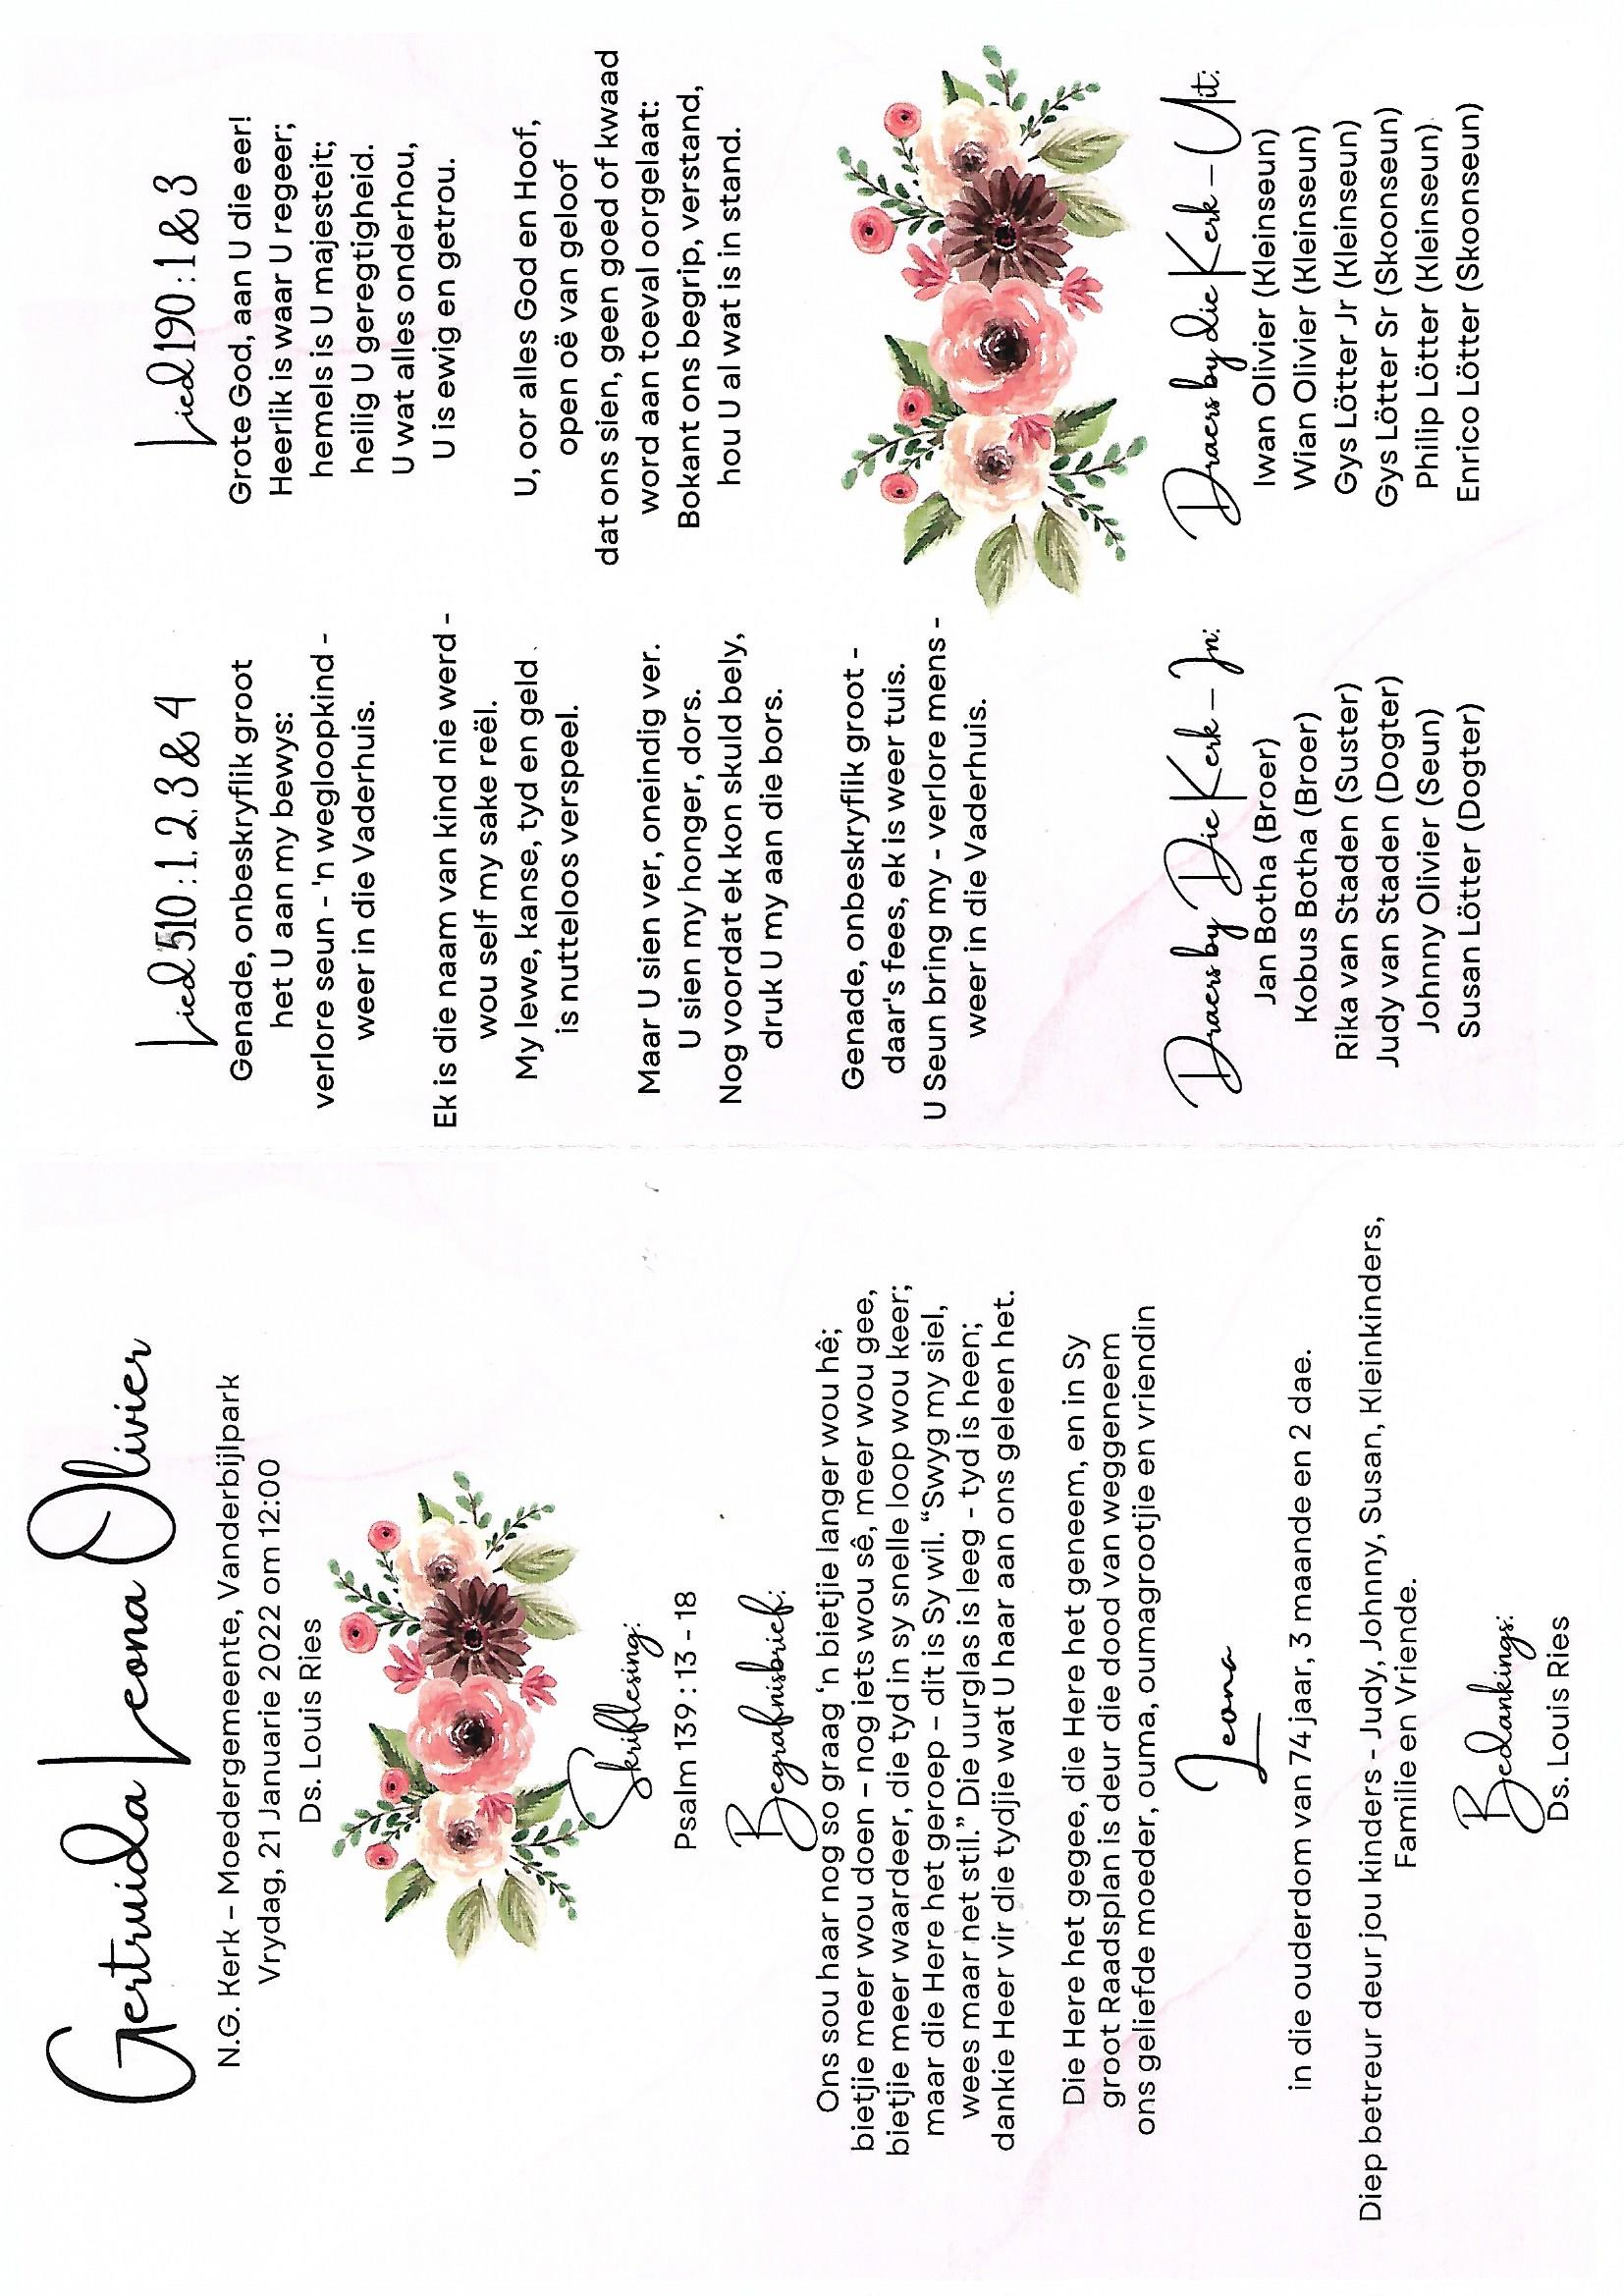 Gertruida Leona Olivier
N.G. Kerk - Moedergemeente, Vanderbijlpark
Vrydag, 21 Januarie 2022 om 12:00
Ds. Louis Ries
Skriflesing:
Psalm 139 : 13 - 18
Begrafnisbrief:
Ons sou haar nog so graag 'n bietjie langer wou hê;
bietjie meer wou doen - nog iets wou sê, meer wou gee,
bietjie meer waardeer, die tyd in sy snelle loop wou keer;
maar die Here het geroep – dit is Sy wil. “Swyg my siel,
wees maar net stil.” Die uurglas is leeg - tyd is heen;
dankie Heer vir die tydjie wat U haar aan ons geleen het.
Die Here het gegee, die Here het geneem, en in Sy
groot Raadsplan is deur die dood van weggeneem
ons geliefde moeder, ouma, oumagrootjie en vriendin
Leona
in die ouderdom van 74 jaar, 3 maande en 2 dae.
Diep betreur deur jou kinders - Judy, Johnny, Susan, Kleinkinders,
Familie en Vriende.
Bedankings:
Ds. Louis Ries
Lied 510 : 1, 2, 3 & 4
Genade, onbeskryflik groot
het U aan my bewys:
verlore seun - 'n wegloopkind -
weer in die Vaderhuis.
Ek is die naam van kind nie werd -
wou self my sake reël.
My lewe, kanse, tyd en geld
is nutteloos verspeel.
Maar U sien ver, oneindig ver.
U sien my honger, dors.
Nog voordat ek kon skuld bely,
druk U my aan die bors.
Genade, onbeskryflik groot -
daar's fees, ek is weer tuis.
U Seun bring my - verlore mens -
weer in die Vaderhuis.
Draers by Die Kerk - In:
Jan Botha (Broer)
Kobus Botha (Broer)
Rika van Staden (Suster)
Judy van Staden (Dogter)
Johnny Olivier (Seun)
Susan Lötter (Dogter)
Lied 190 : 1 & 3
Grote God, aan U die eer!
Heerlik is waar U regeer;
hemels is U majesteit;
heilig U geregtigheid.
U wat alles onderhou,
U is ewig en getrou.
U, oor alles God en Hoof,
open oë van geloof
dat ons sien, geen goed of kwaad
word aan toeval oorgelaat:
Bokant ons begrip, verstand,
hou U al wat is in stand.
Draers by die Kerk - Uit:
Iwan Olivier (Kleinseun)
Wian Olivier (Kleinseun)
Gys Lötter Jr (Kleinseun)
Gys Lötter Sr (Skoonseun)
Philip Lötter (Kleinseun)
Enrico Lötter (Skoonseun)